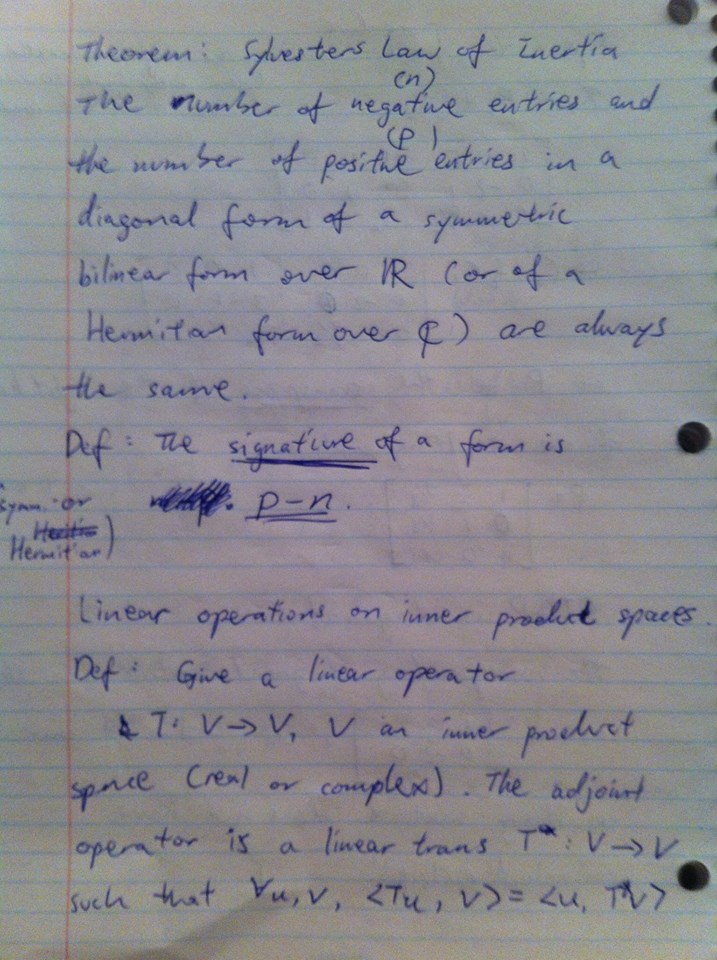 Theorem: Sylvesters Law of Inertia
(n)
The number of negative entries and
(p)
the number of positive entries in a
diagonal form of a symmetric
bilinear form over ℝ (or of a
Hermitian form over ℂ) are always
the same.
Def: The signature of a form is
symm. or p-n.
Hermitian)
Linear operations on inner product spaces.
Def: Give a linear operator
T: V → V, V an inner product
space (real or complex). The adjoint
operator is a linear trans T*: V → V
such that ∀u,v, <Tu, v> = <u, T*v>